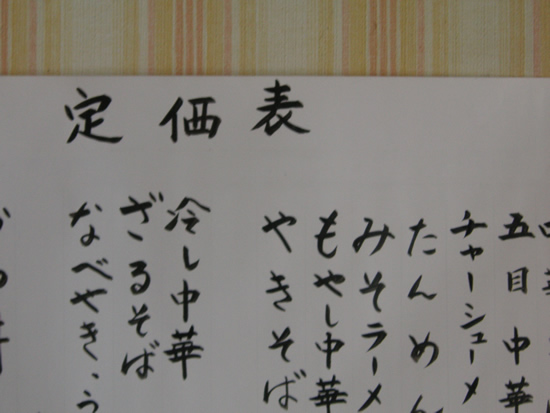 定価表
五目中華
チャーシューメ
たんめん
みそラーメ
もやし中華
やきそば
冷し中華
ざるそば
なべやき、う